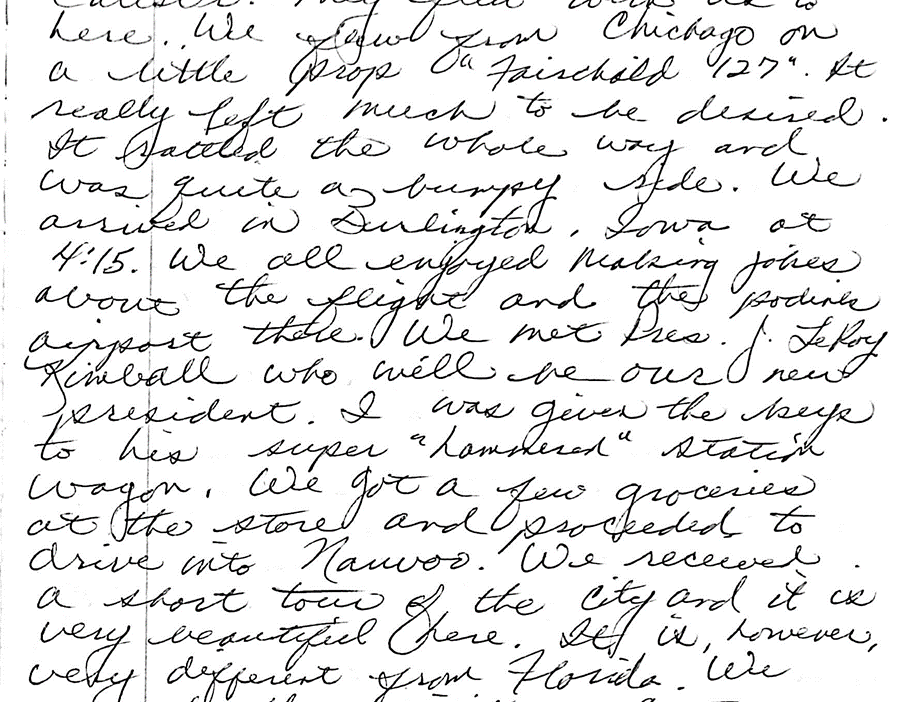 They flew with us to
here. We flew from Chichago on
a little prop "Fairchild 127". It
really left much to be desired.
It rattled the whole way and
was quite a bumpy ride. We
arrived in Burlington, Iowa at
4:15. We all enjoyed making jokes
about the flight and the podink
airport there. We met Pres. J. LeRoy
Kimball who will be our new
president. I was given the keys
to his super "hammered" station
wagon. We got a few groceries
at the store and proceeded to
drive into Nauvoo. We received
a short tour of the city and it is
very beautiful here. It is, however,
very different from Florida. We